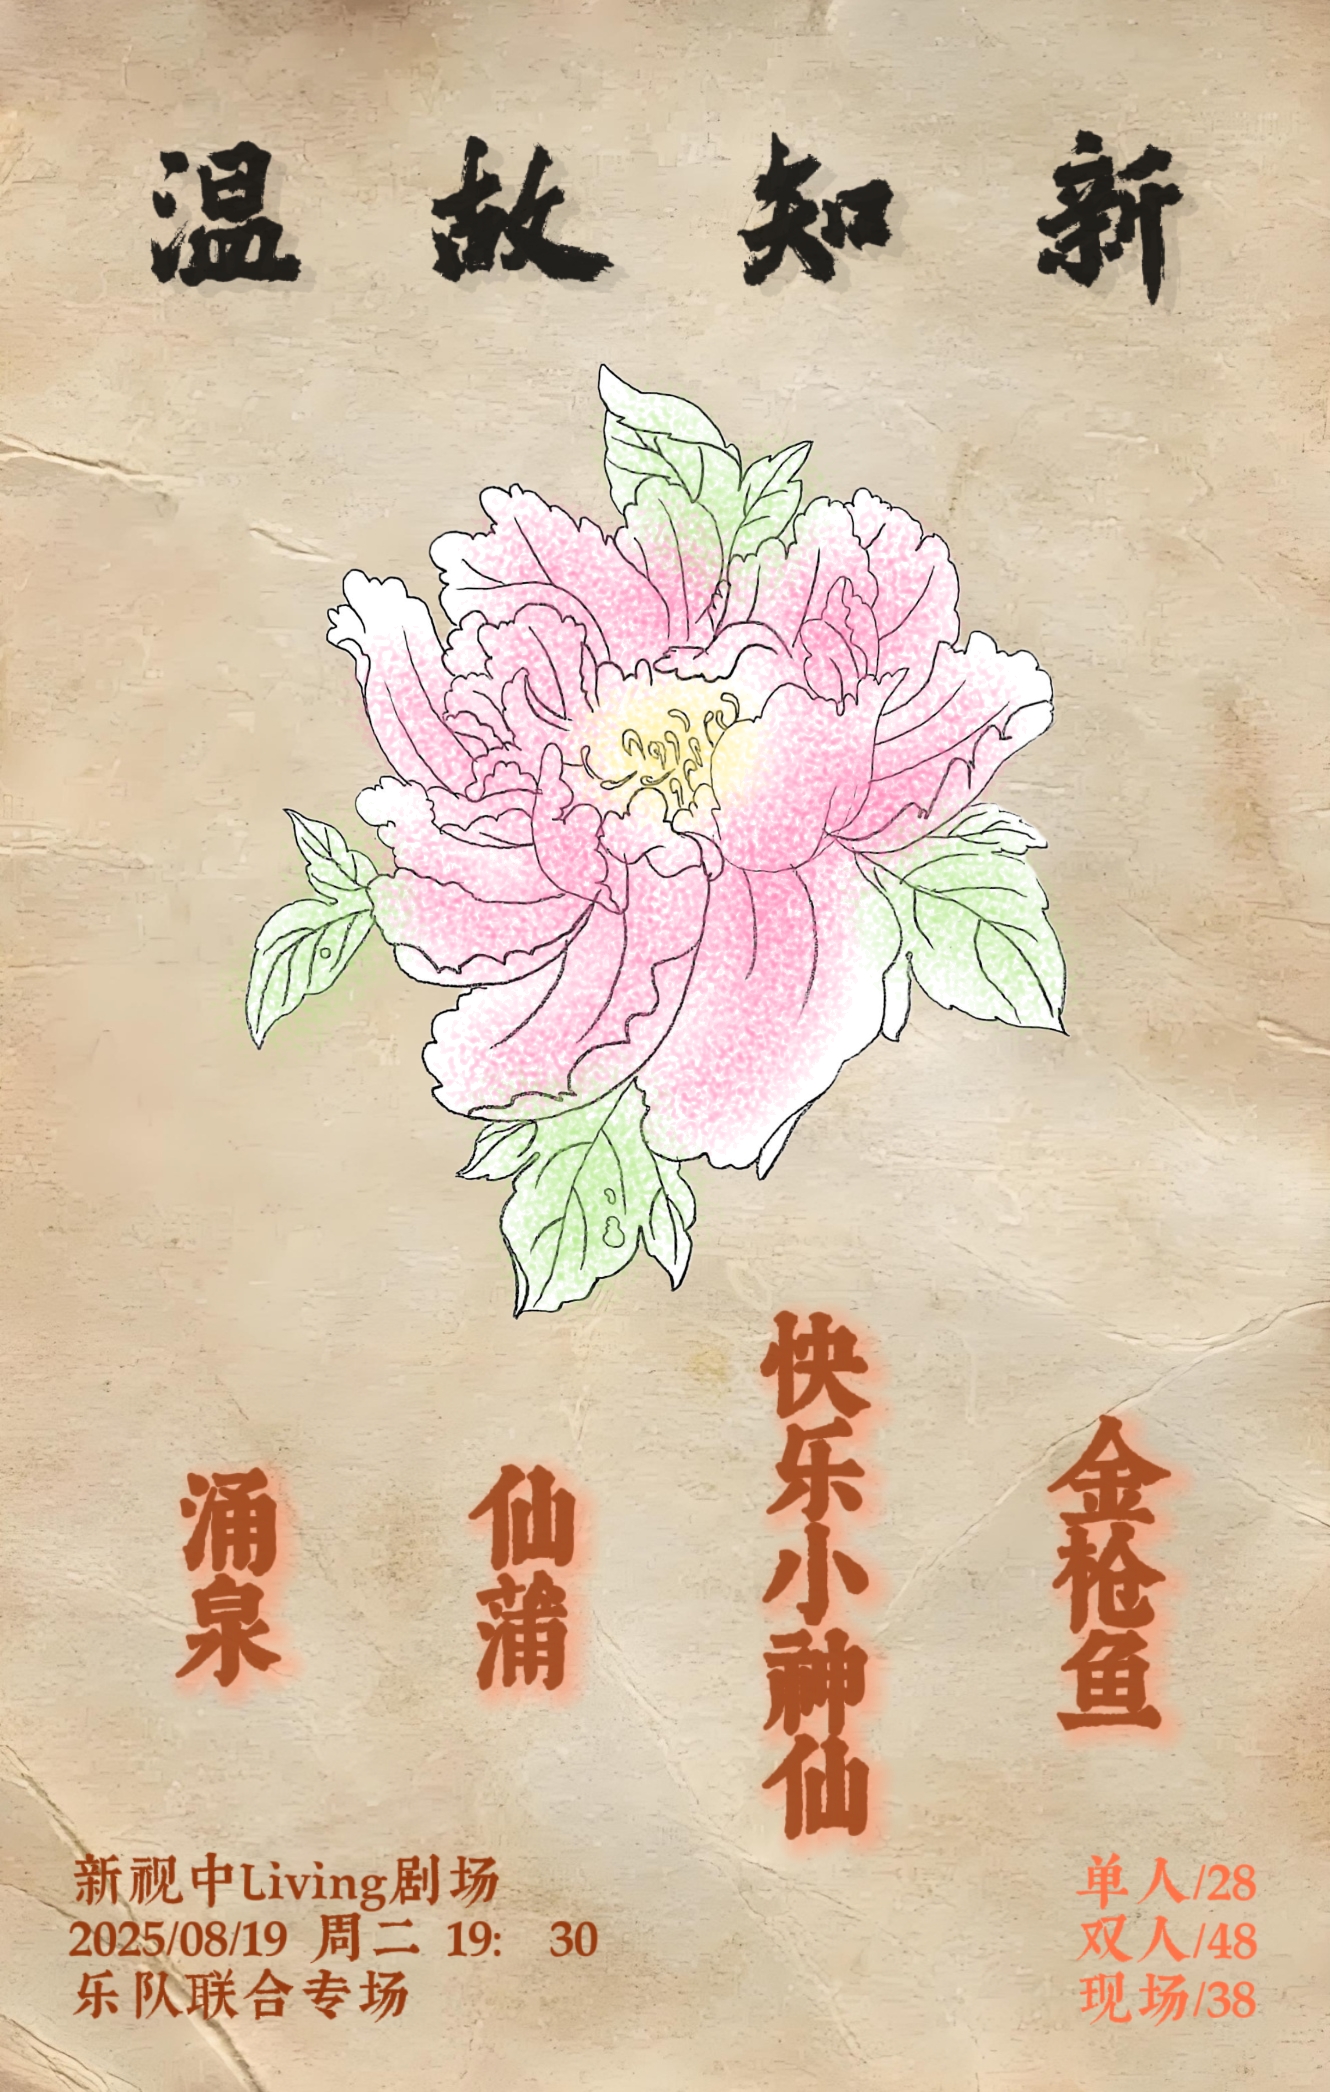 温故知新
涌泉
仙蒲
快乐小神仙
金枪鱼
新视中Living剧场
2025/08/19 周二 19: 30
乐队联合专场
单人/28
双人/48
现场/38